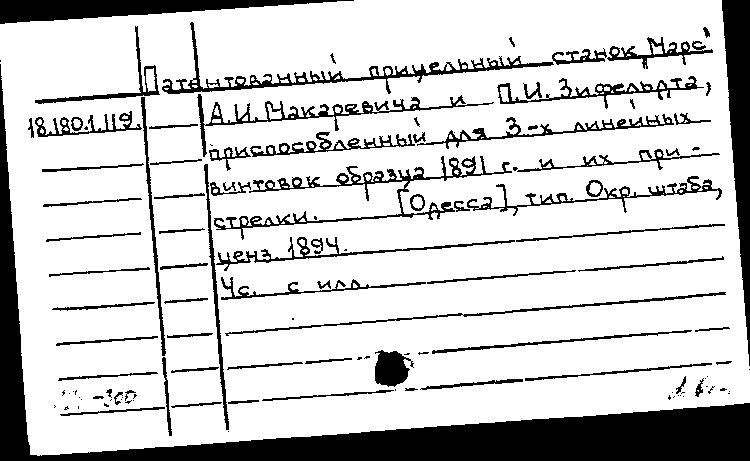 Патентованный прицельный станок „Марс"
18.180.1.119. А.И. Макаревича и П.И. Зифельдта,
приспособленный для 3-х линейных
винтовок образца 1891 г. и их при-
стрелки. [Одесса], тип. Окр. штаба,
ценз. 1894.
4с. с илл.
-300